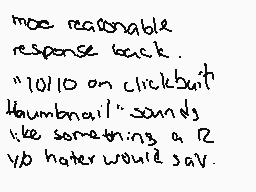 moe reasonable
response back.
"10/10 on clickbait
thumbnail" sounds
like something a 12
y/o hater would say.